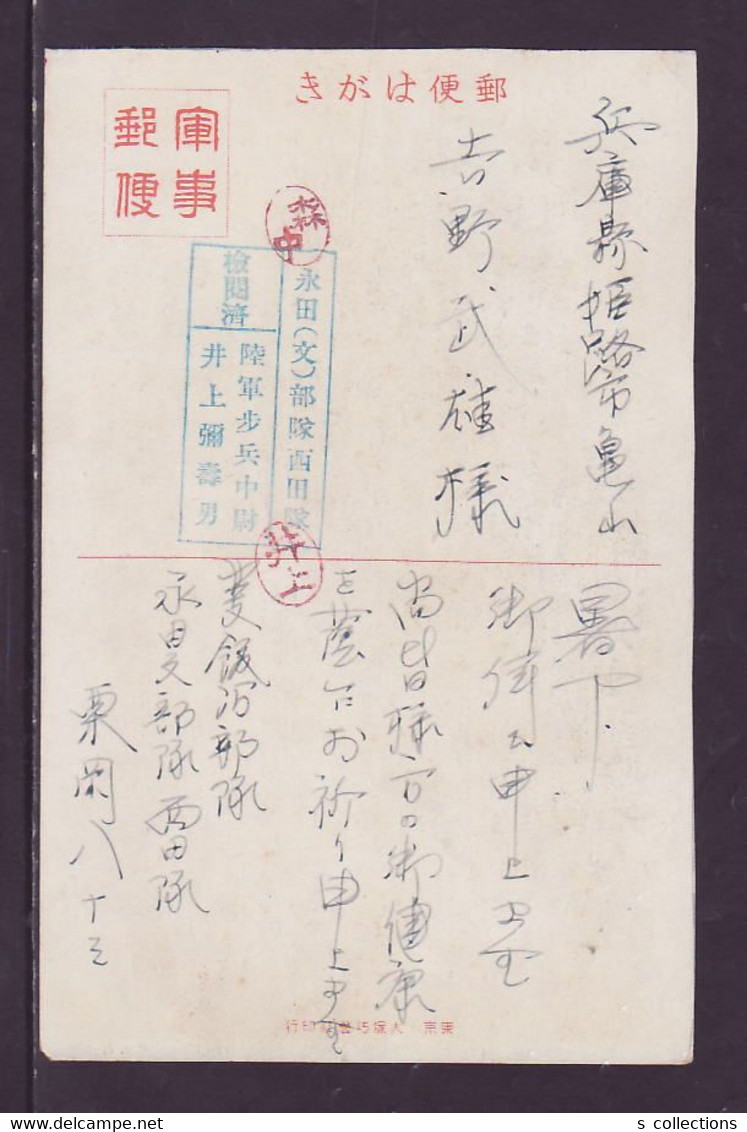 郵便はがき
軍事
郵便
兵庫縣姫路市亀山
吉野武雄様
森
中
永田(文)部隊西田隊
檢閲濟
陸軍步兵中尉
井上彌壽男
井上
暑中
御伺云申上候
尚皆様方の御健康
を蔭乍お祈り申上候
飯沼部隊
永田文部隊西田隊
栗岡八十三
東京 大塚巧藝社印行
s collections